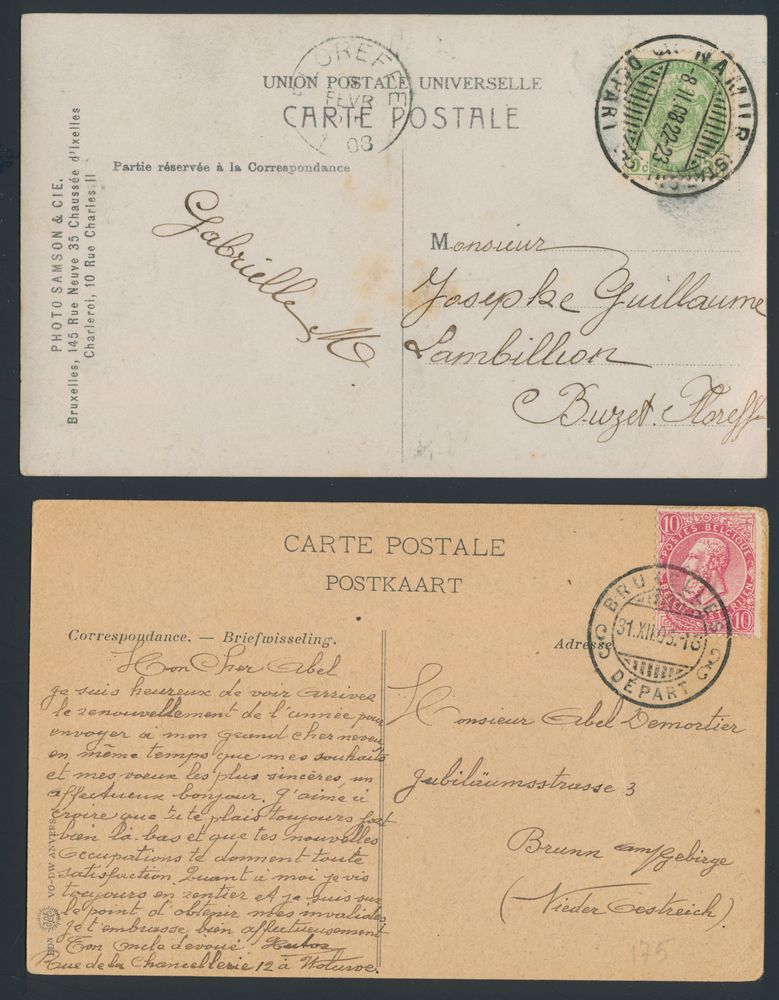 FLOREFFE
8
FEVR
08
UNION POSTALE UNIVERSELLE
CARTE POSTALE
NAMUR (STATION)
DÉPART
8.II.08.22-23
Partie réservée à la Correspondance
PHOTO SAMSON & CIE.
Bruxelles, 145 Rue Neuve 35 Chaussée d'Ixelles
Charleroi, 10 Rue Charles II
Gabrielle M
Monsieur
Josephe Guillaume
Lambillion
Buzet. Floreff
CARTE POSTALE
POSTKAART
10 10
POSTES BELGIQUE
10
BRUXELLES
31.XII.05.-16
DÉPART
Correspondance. — Briefwisseling.
Adresse
Mon Cher Abel
je suis heureux de voir arriver
le renouvellement de l'année pour
envoyer à mon grand cher neveu
en même temps que mes souhaits
et mes voeux les plus sincères, un
affectueux bonjour. J'aime à
croire que tu te plais toujours fort
bien là-bas et que tes nouvelles
Occupations te donment toute
satisfaction. Quant à moi je vis
toujours en rentier et je suis sur
le point d'obtenir mes invalides
je t'embrasse bien affectueusement
Ton oncle dévoué
Rue de la Chancellerie 12 à Woluwe.
VO-DW ANVERS
Monsieur Abel Demortier
Jubiläumsstrasse 3
Brunn am/Gebirge
(Nieder Oestreich)
175